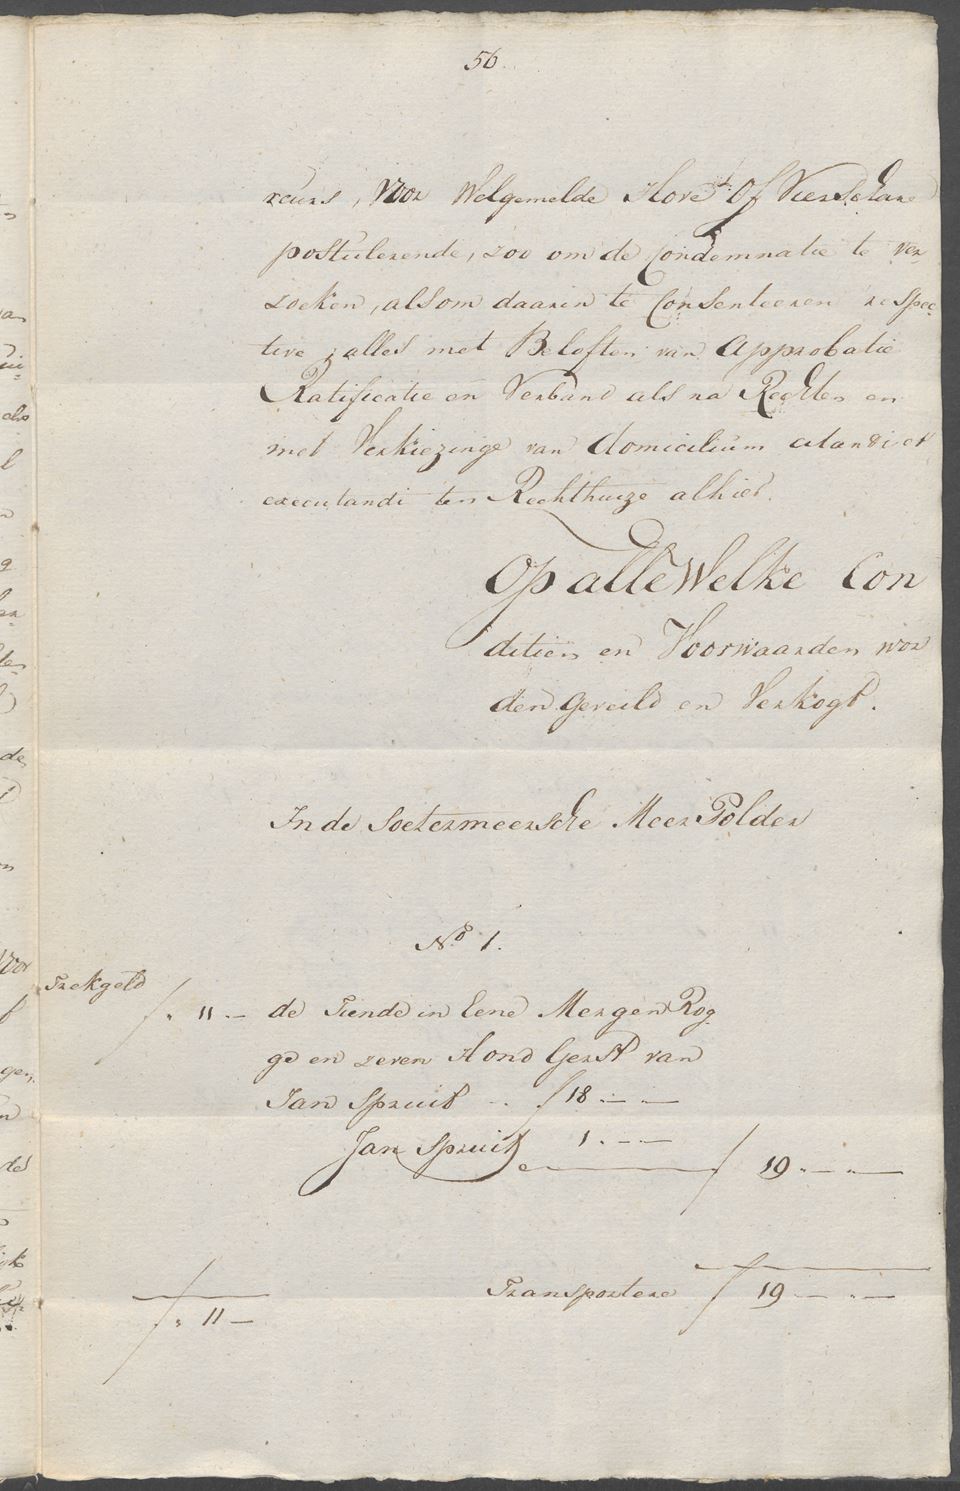 56.
reurs, voor Welgemelde Hove of Vierschare
postulerende, zoo om de Condemnatie te ver-
zoeken, als om daarin te Consenteeren respec-
tive, alles met Beloften van Approbatie
Ratificatie en Verband als na Rechten en
met Verkiezinge van domicilium citandi et
executandi ten Rechthuize alhier.
Op alle Welke Con
ditien en Voorwaarden wor
den geveild en Verkogt.
In de Soetermeersche Meer Polder
No 1.
Trekgeld
ƒ " 11 . — de Tiende in Eene Mergen Rog
ge en zeven Hond Gerst van
Jan Spruit .. ƒ 18 . — . —
Jan Spruit 1 . — —
ƒ 19 . — . —
Transportere ƒ 19 — . —
ƒ " 11 —